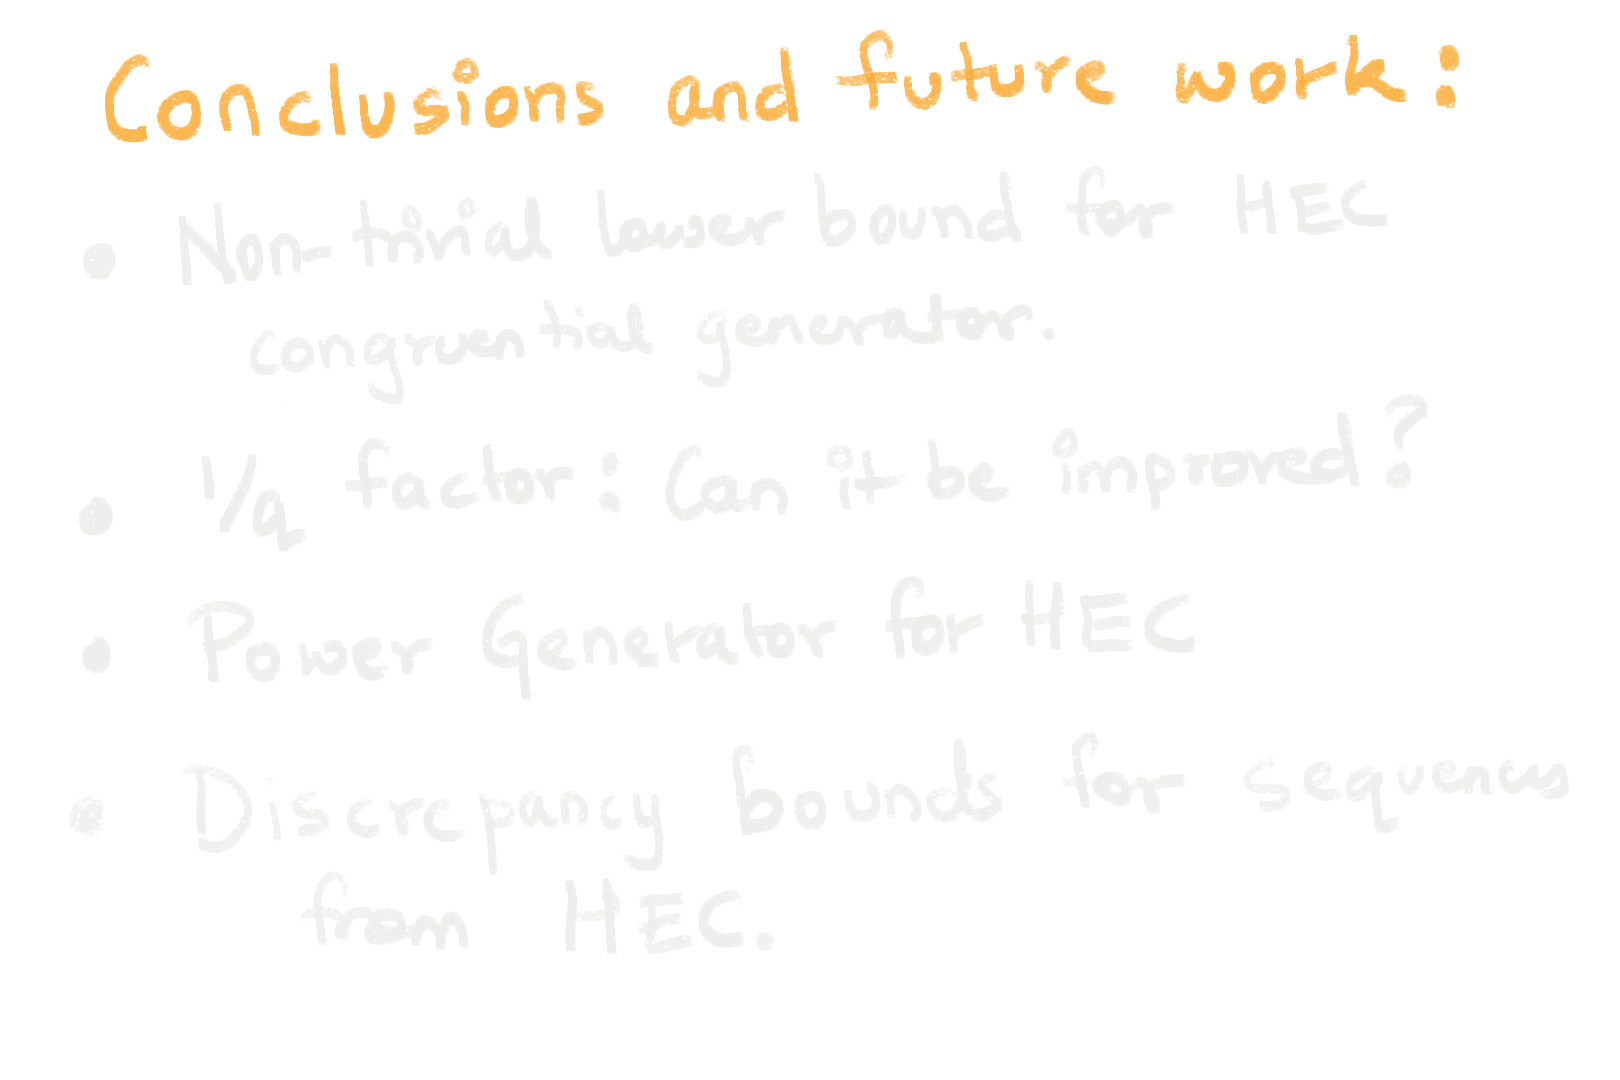 Conclusions and future work:
• Non-trivial lower bound for HEC
congruential generator.
• 1/q factor: Can it be improved?
• Power Generator for HEC
• Discrepancy bounds for sequences
from HEC.